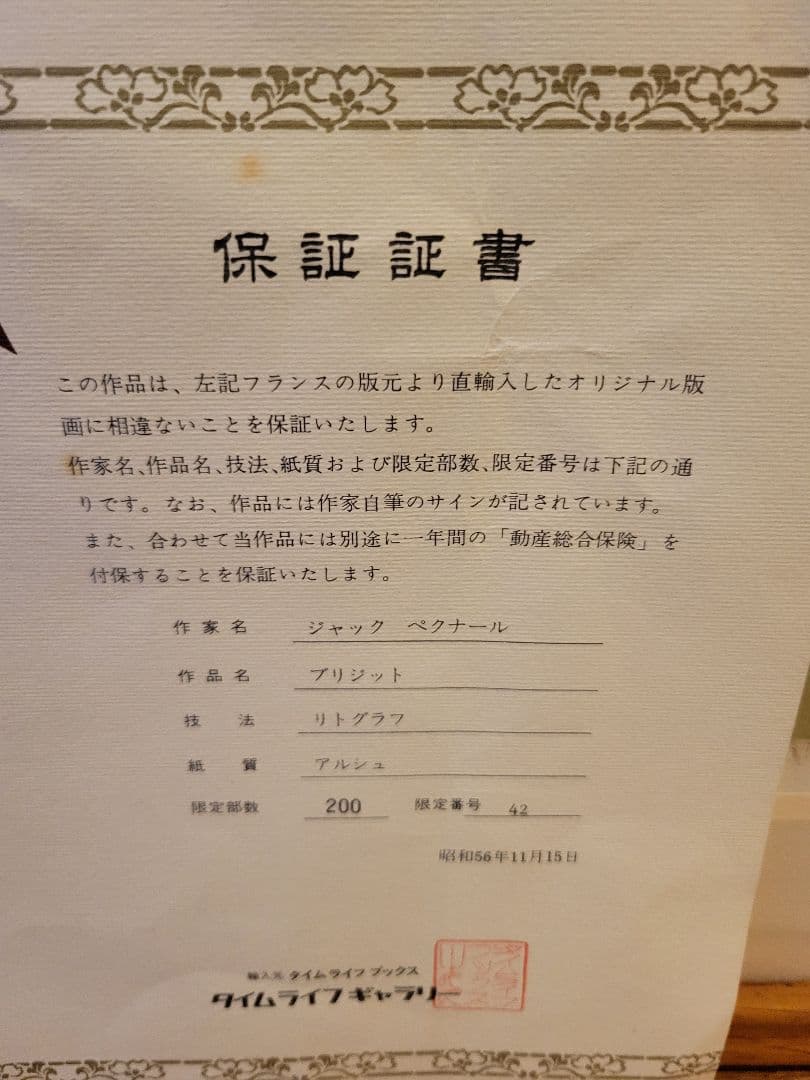 保証証書
この作品は、左記フランスの版元より直輸入したオリジナル版
画に相違ないことを保証いたします。
作家名、作品名、技法、紙質および限定部数、限定番号は下記の通
りです。なお、作品には作家自筆のサインが記されています。
また、合わせて当作品には別途に一年間の「動産総合保険」を
付保することを保証いたします。
作家名 ジャック ペクナール
作品名 ブリジット
技法 リトグラフ
紙質 アルシュ
限定部数 200 限定番号 42
昭和56年11月15日
輸入元 タイムライフブックス
タイムライフギャラリー